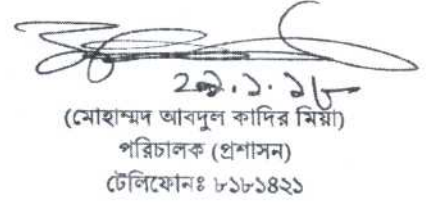 (মোহাম্মদ আবদুল কাদির মিয়া)
পরিচালক (প্রশাসন)
টেলিফোনঃ ৮১৮১৪২১